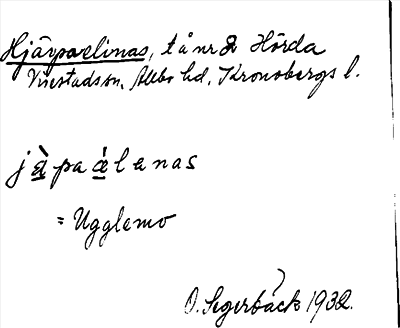 Hjärpaelinas, tå nr 2 Hörda
Virestads sn, Allbo hd, Kronobergs l.
jàpaélenas
= Ugglemo
O. Segerbäck 1932.